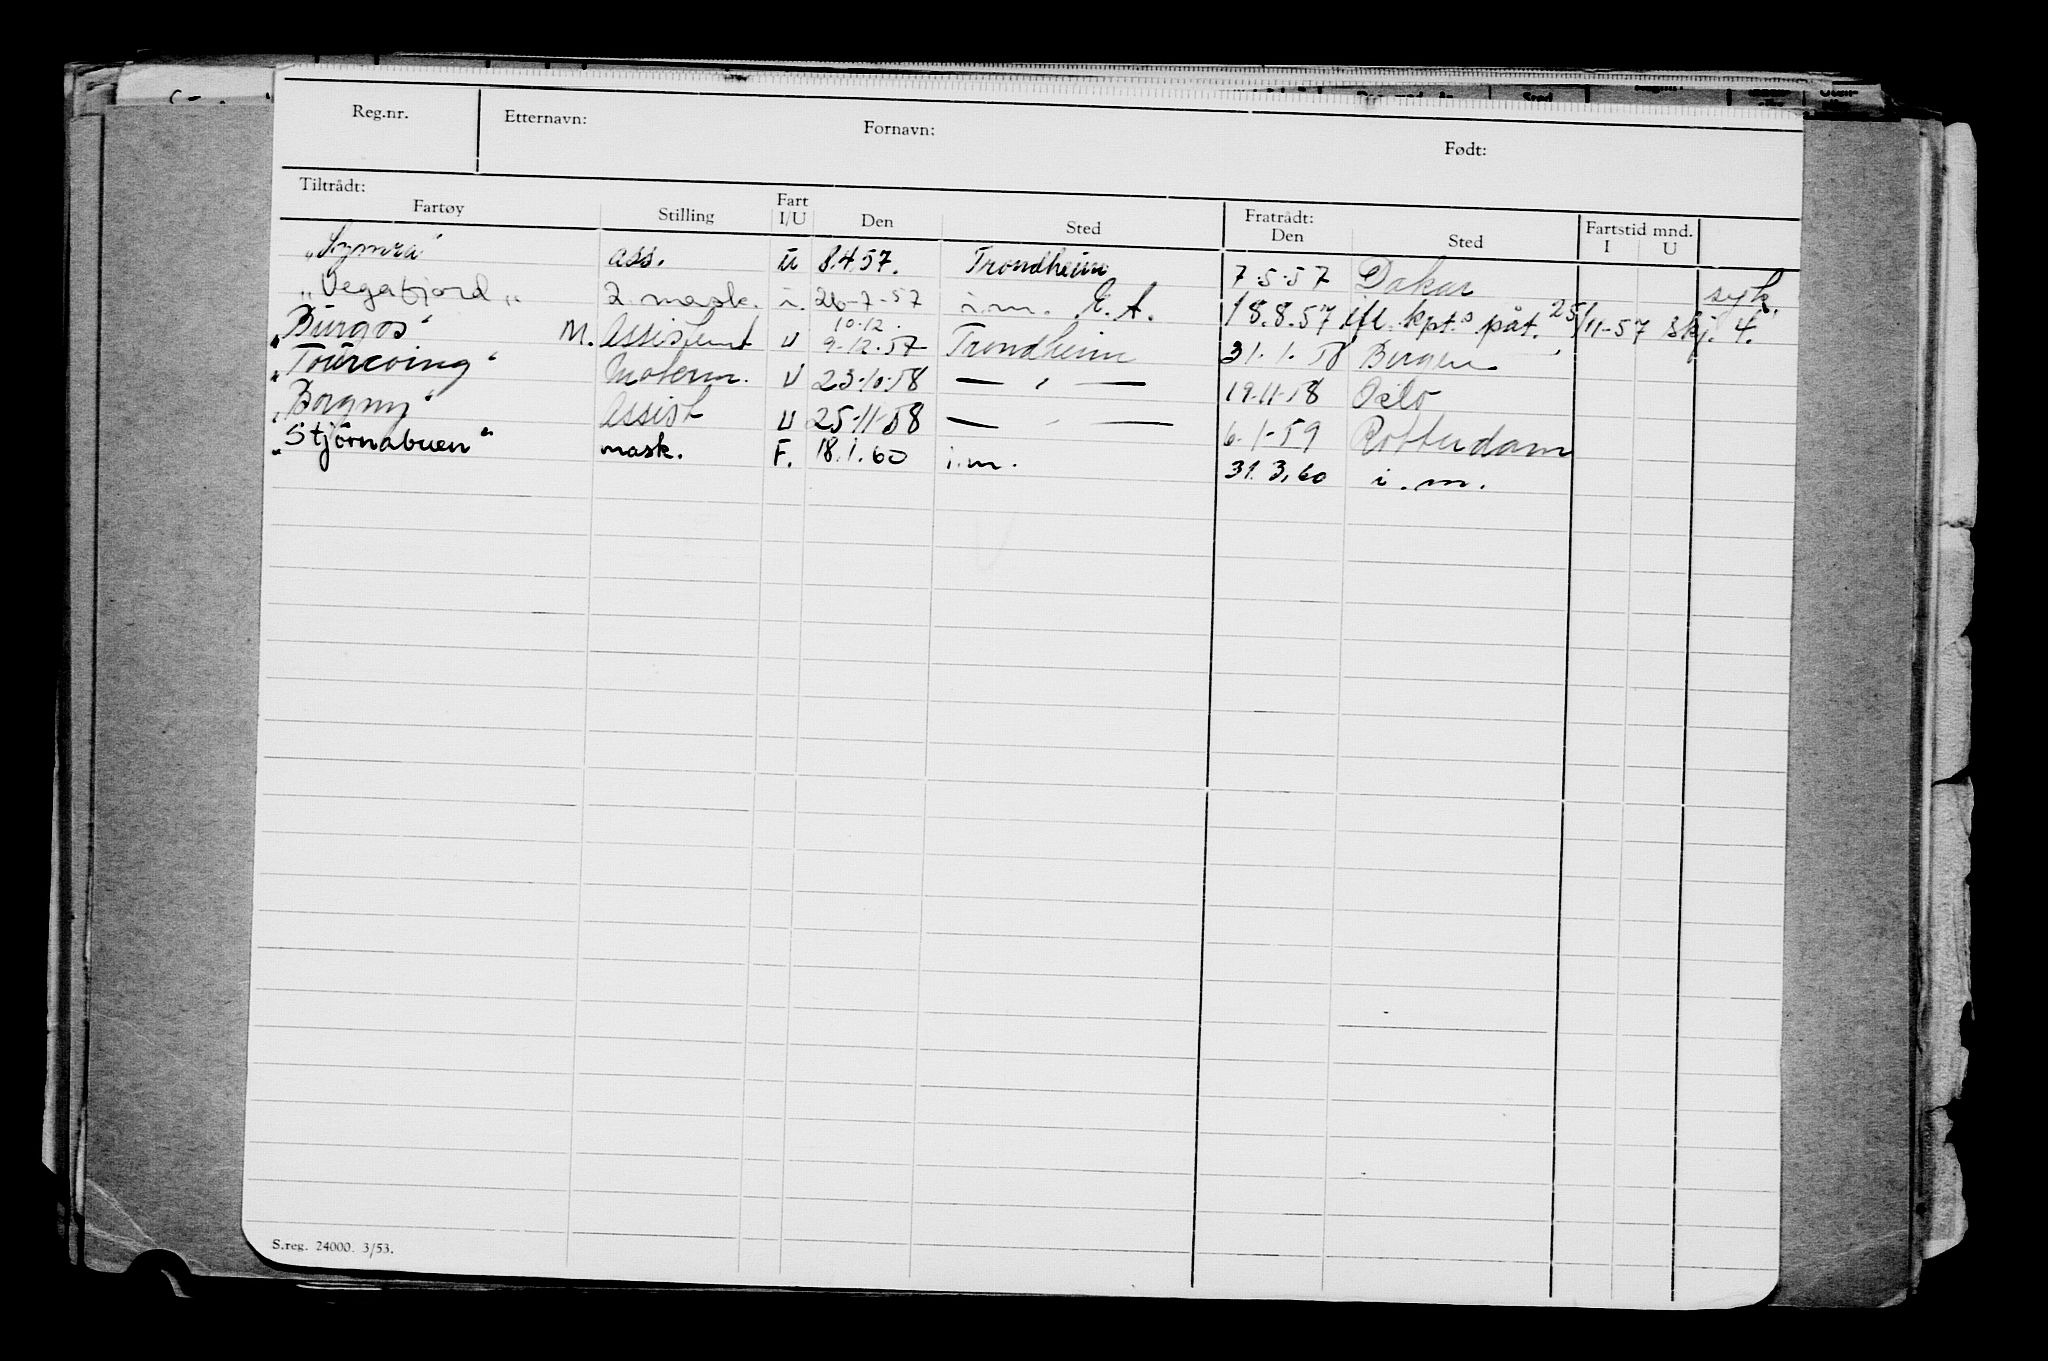 Reg.nr. Etternavn: Fornavn: Født:
Tiltrådt: Fratrådt:
Fartøy Stilling Fart I/U Den Sted Den Sted Fartstid mnd. I U
"Lymra" ass. u 8.4.57. Trondheim 7-5-57 Dakar syk.
"Vegafjord" 2. mask. i. 26-7-57 i.m. E.A. 18.8.57 ifl. kpt.s påt. 25/11-57 skj. 4.
10.12.
"Burgos" M. Assistent U 9-12-57 Trondheim 31.1.58 Bergen
"Tourcoing" Motorm. U 23-10-58 — " — 19-11-58 Oslo
"Borgny" Assist U 25-11-58 — " — 6-1-59 Rotterdam
"Stjörnabuen" mask. F. 18.1.60 i.m. 31.3.60 i.m.
S.reg. 24000. 3/53.